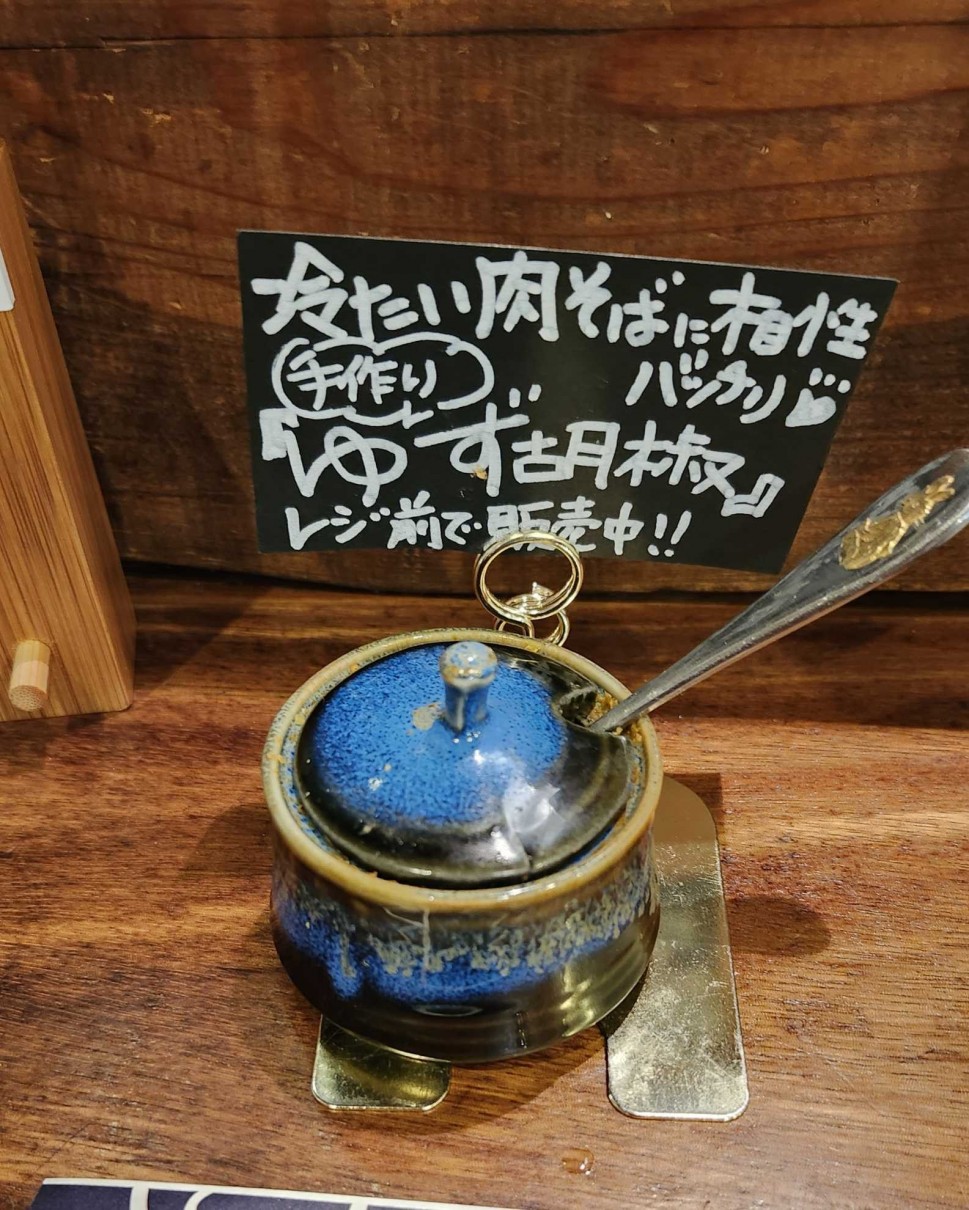 冷たい肉そばに相性
バッチリ♥
手作り
『ゆず胡椒』
レジ前で販売中!!